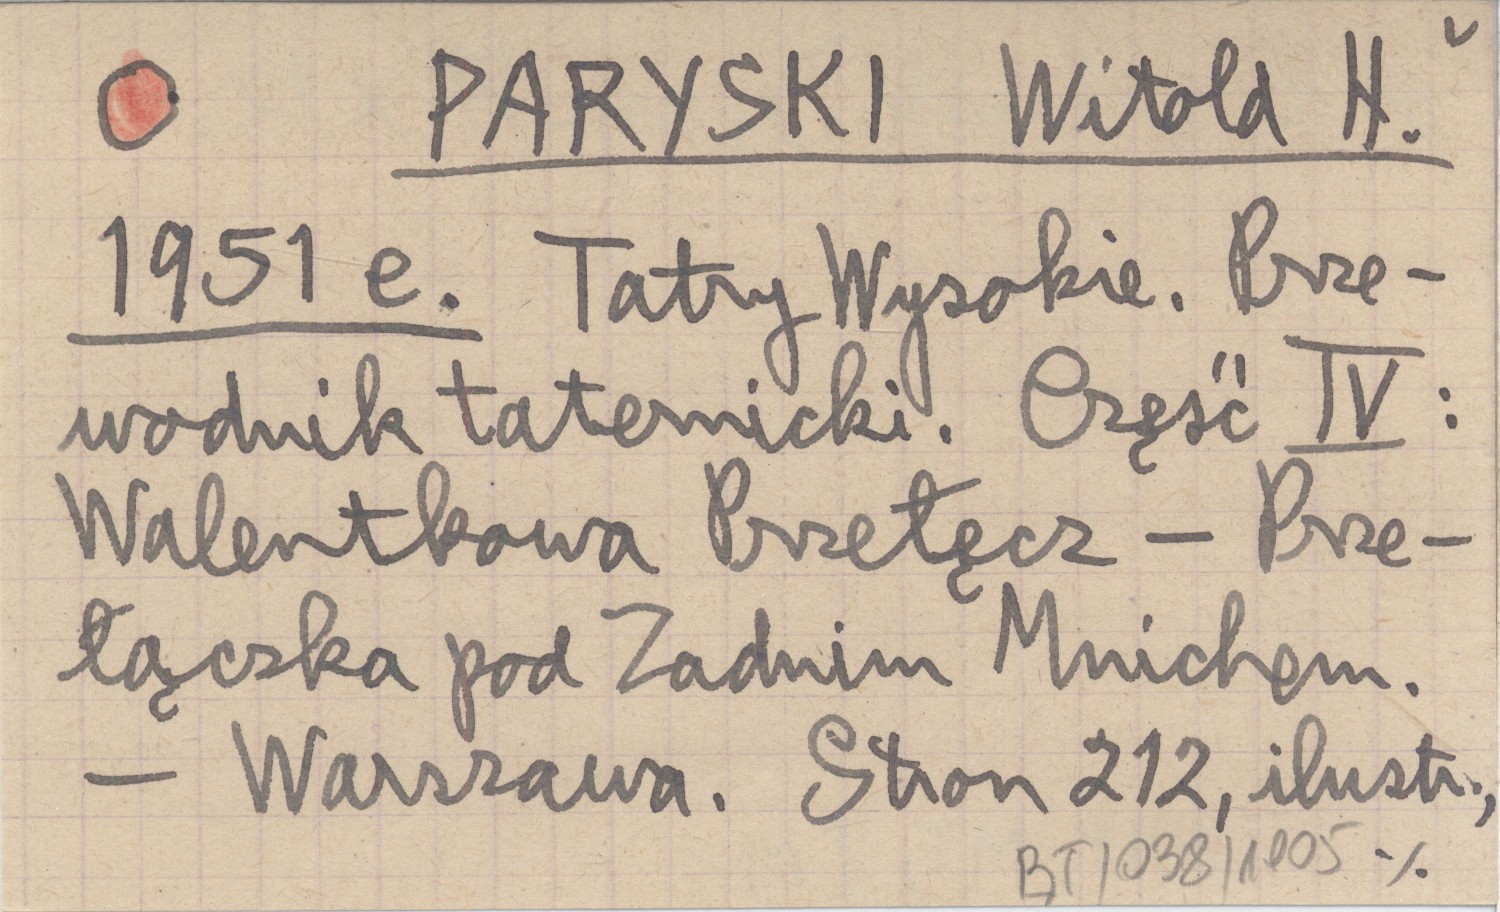 PARYSKI Witold H.
1951 e. Tatry Wysokie. Prze-
wodnik taternicki. Część IV:
Walentkowa Przełęcz — Prze-
łączka pod Zadnim Mnichem.
— Warszawa. Stron 212, ilustr.,
BT/038/1005 ·/.